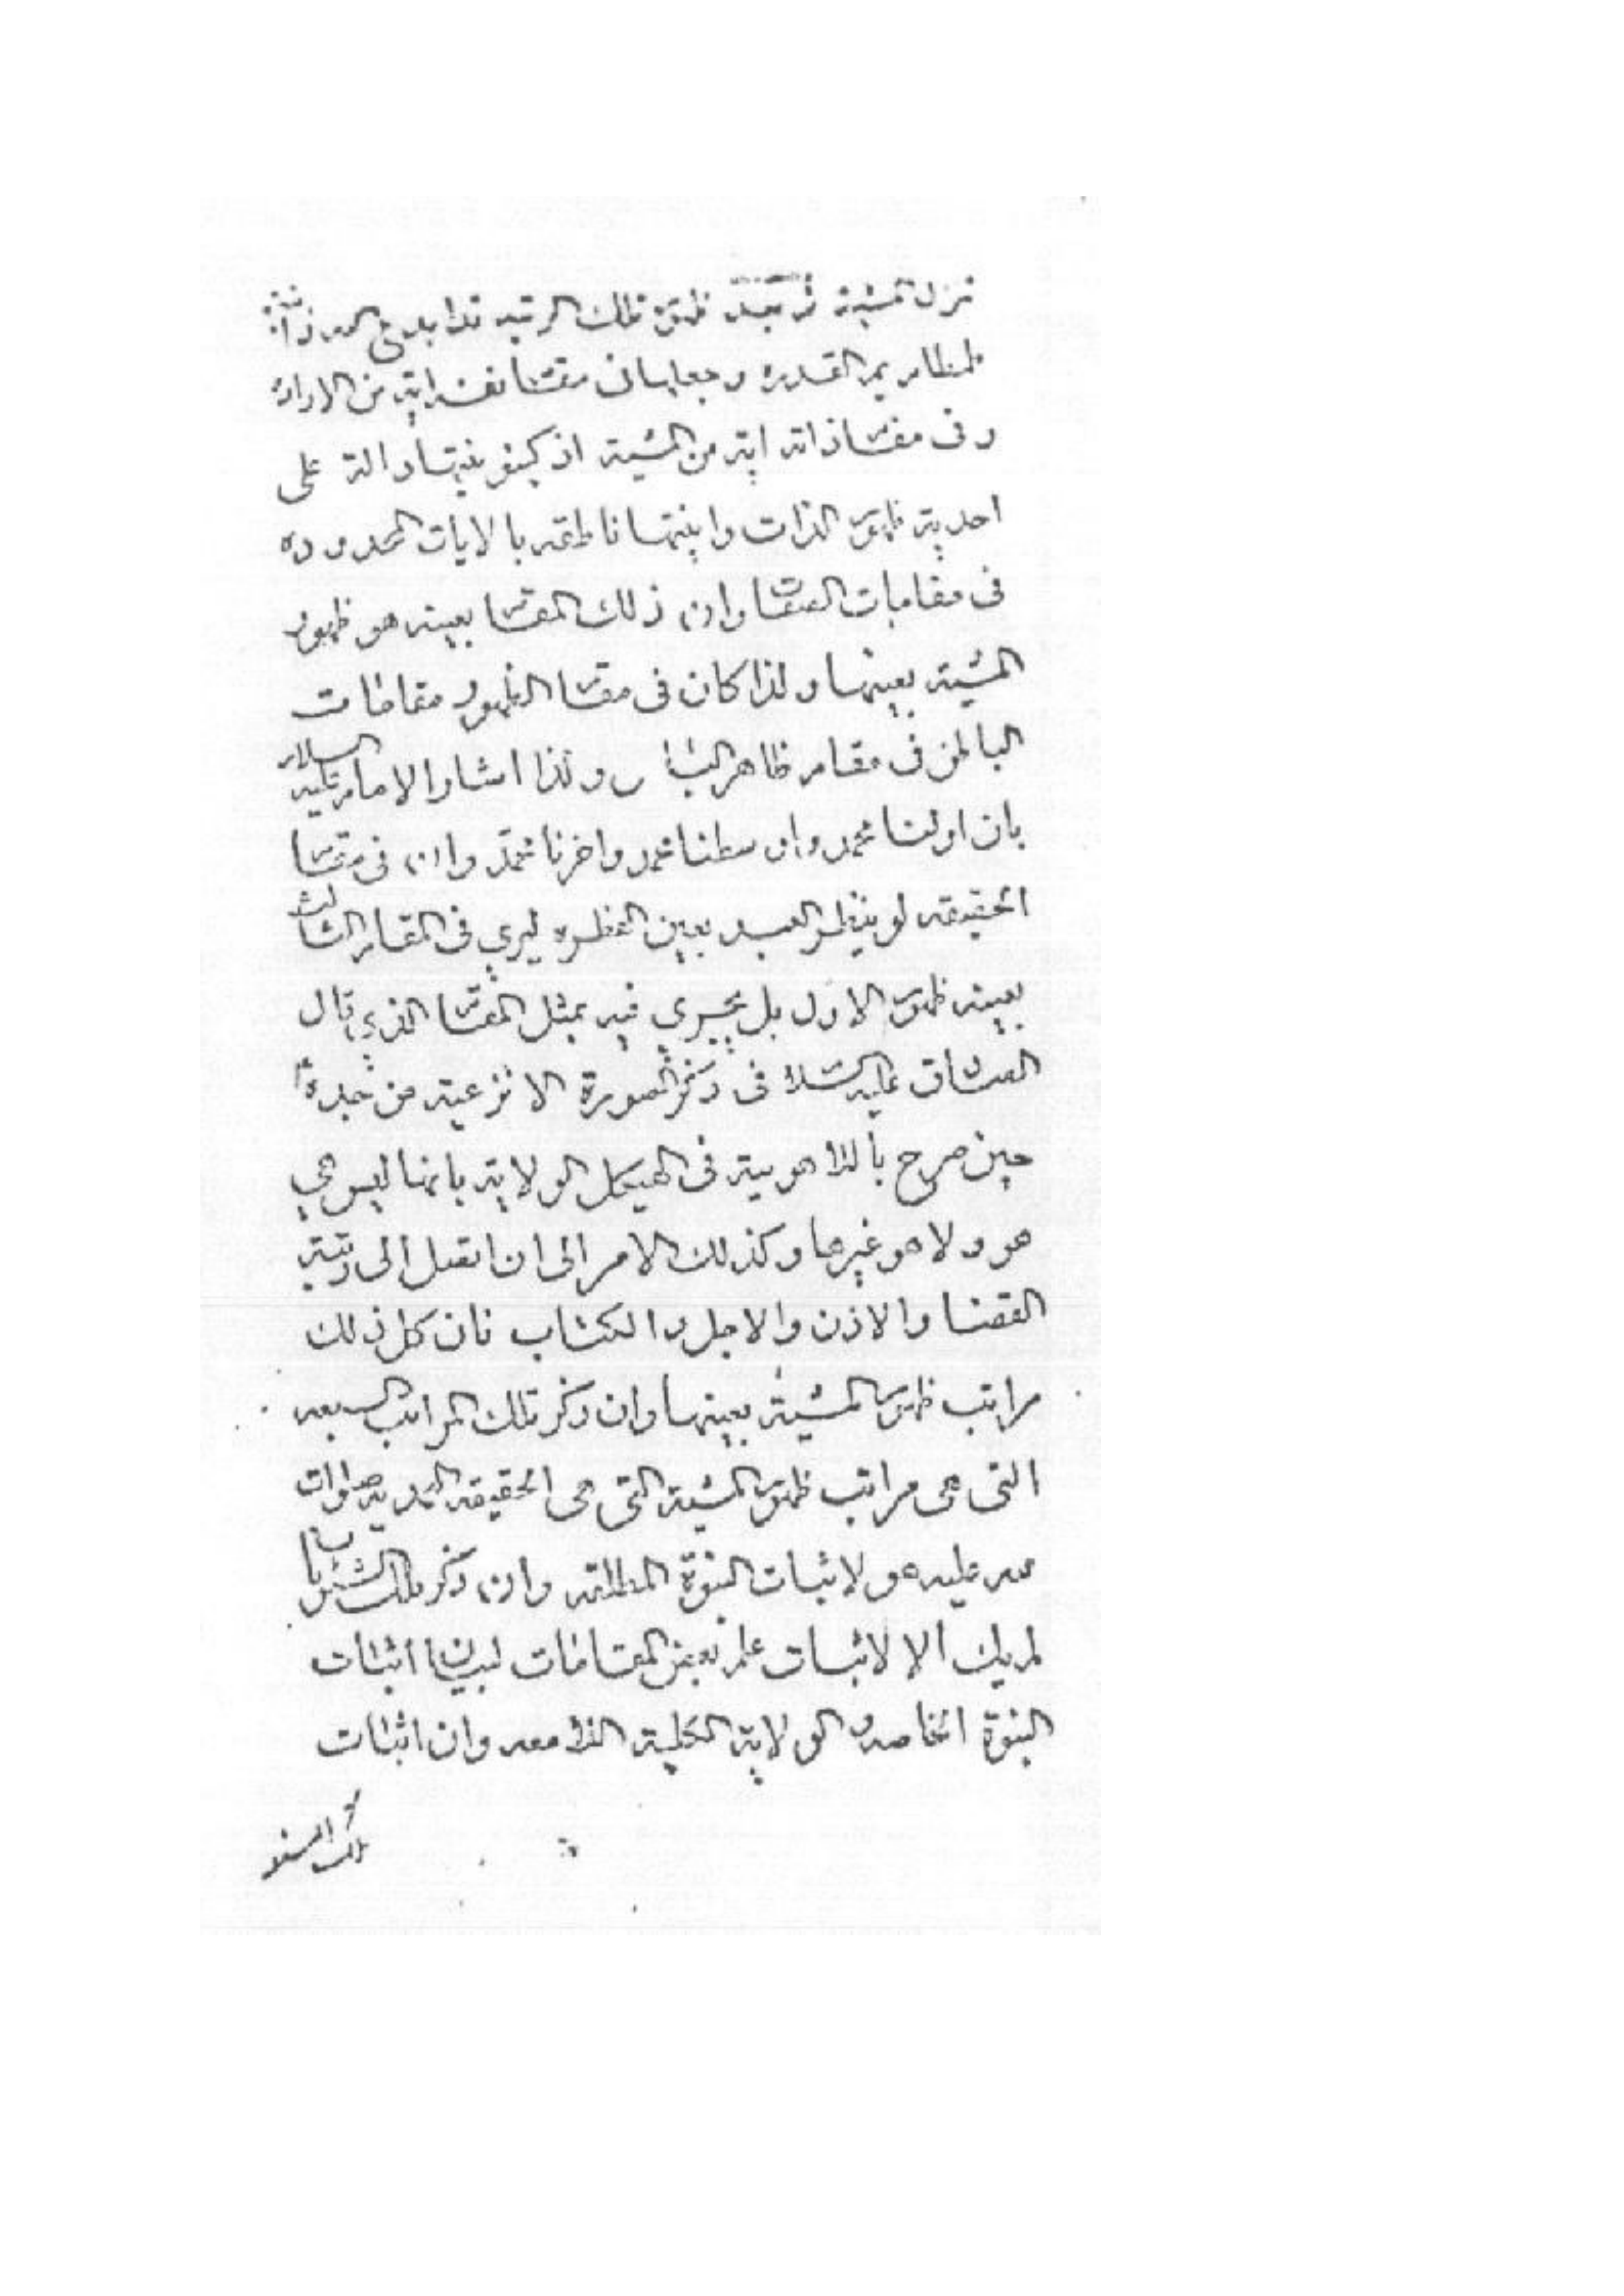 نزل المشية ثم بعد ظهور تلك الرتبه قد ابدع الله ذاتية
في مقتا نفسه اية من الارادة
و فى مقتا ذاته اية من المشية اذ كينونيتها دالة على
احدية ظهور الذات وانيتها ناطقه بالايات المحدوده
فى مقامات الصفتا وان ذلك المقتا بعينه هو ظهور
المشية بعينها ولذا كان فى مقتا الظهور مقامات
الباطن فى مقام ظاهر ولذا اشار الامام عليه السلام
بان اولنا محمد واوسطنا محمد واخرنا محمد وان فى مقتا
الحقيقه لو ينظر العبد بعين الفطره ليري فى المقام الثالث
بعينه ظهور الاول بل يجري فيه بمثل المقتا الذي قال
الصادق عليه السلا فى ذكر الصورة الانزعية من
حين صرح باللاهويية فى الهيكل الولاية بانها ليس هي
هو ولا هو غيرها وكذلك الامر الى ان اتصل الى رتبة
القضا والاذن والاجل والكتاب فان كل ذلك
مراتب ظهور المشية بعينها وان ذكر تلك المراتب السبعه
التى هى مراتب ظهور المشية التى هى الحقيقه المحمدية صلوات
الله عليه هو لاثبات النبوة المطلقه وان ذكر تلك الشئونات
لم يك الا لاثبات علم بعض المقامات لبيان اثبات
النبوة الخاصه و الولاية الكلية الجامعه وان اثبات
تلك